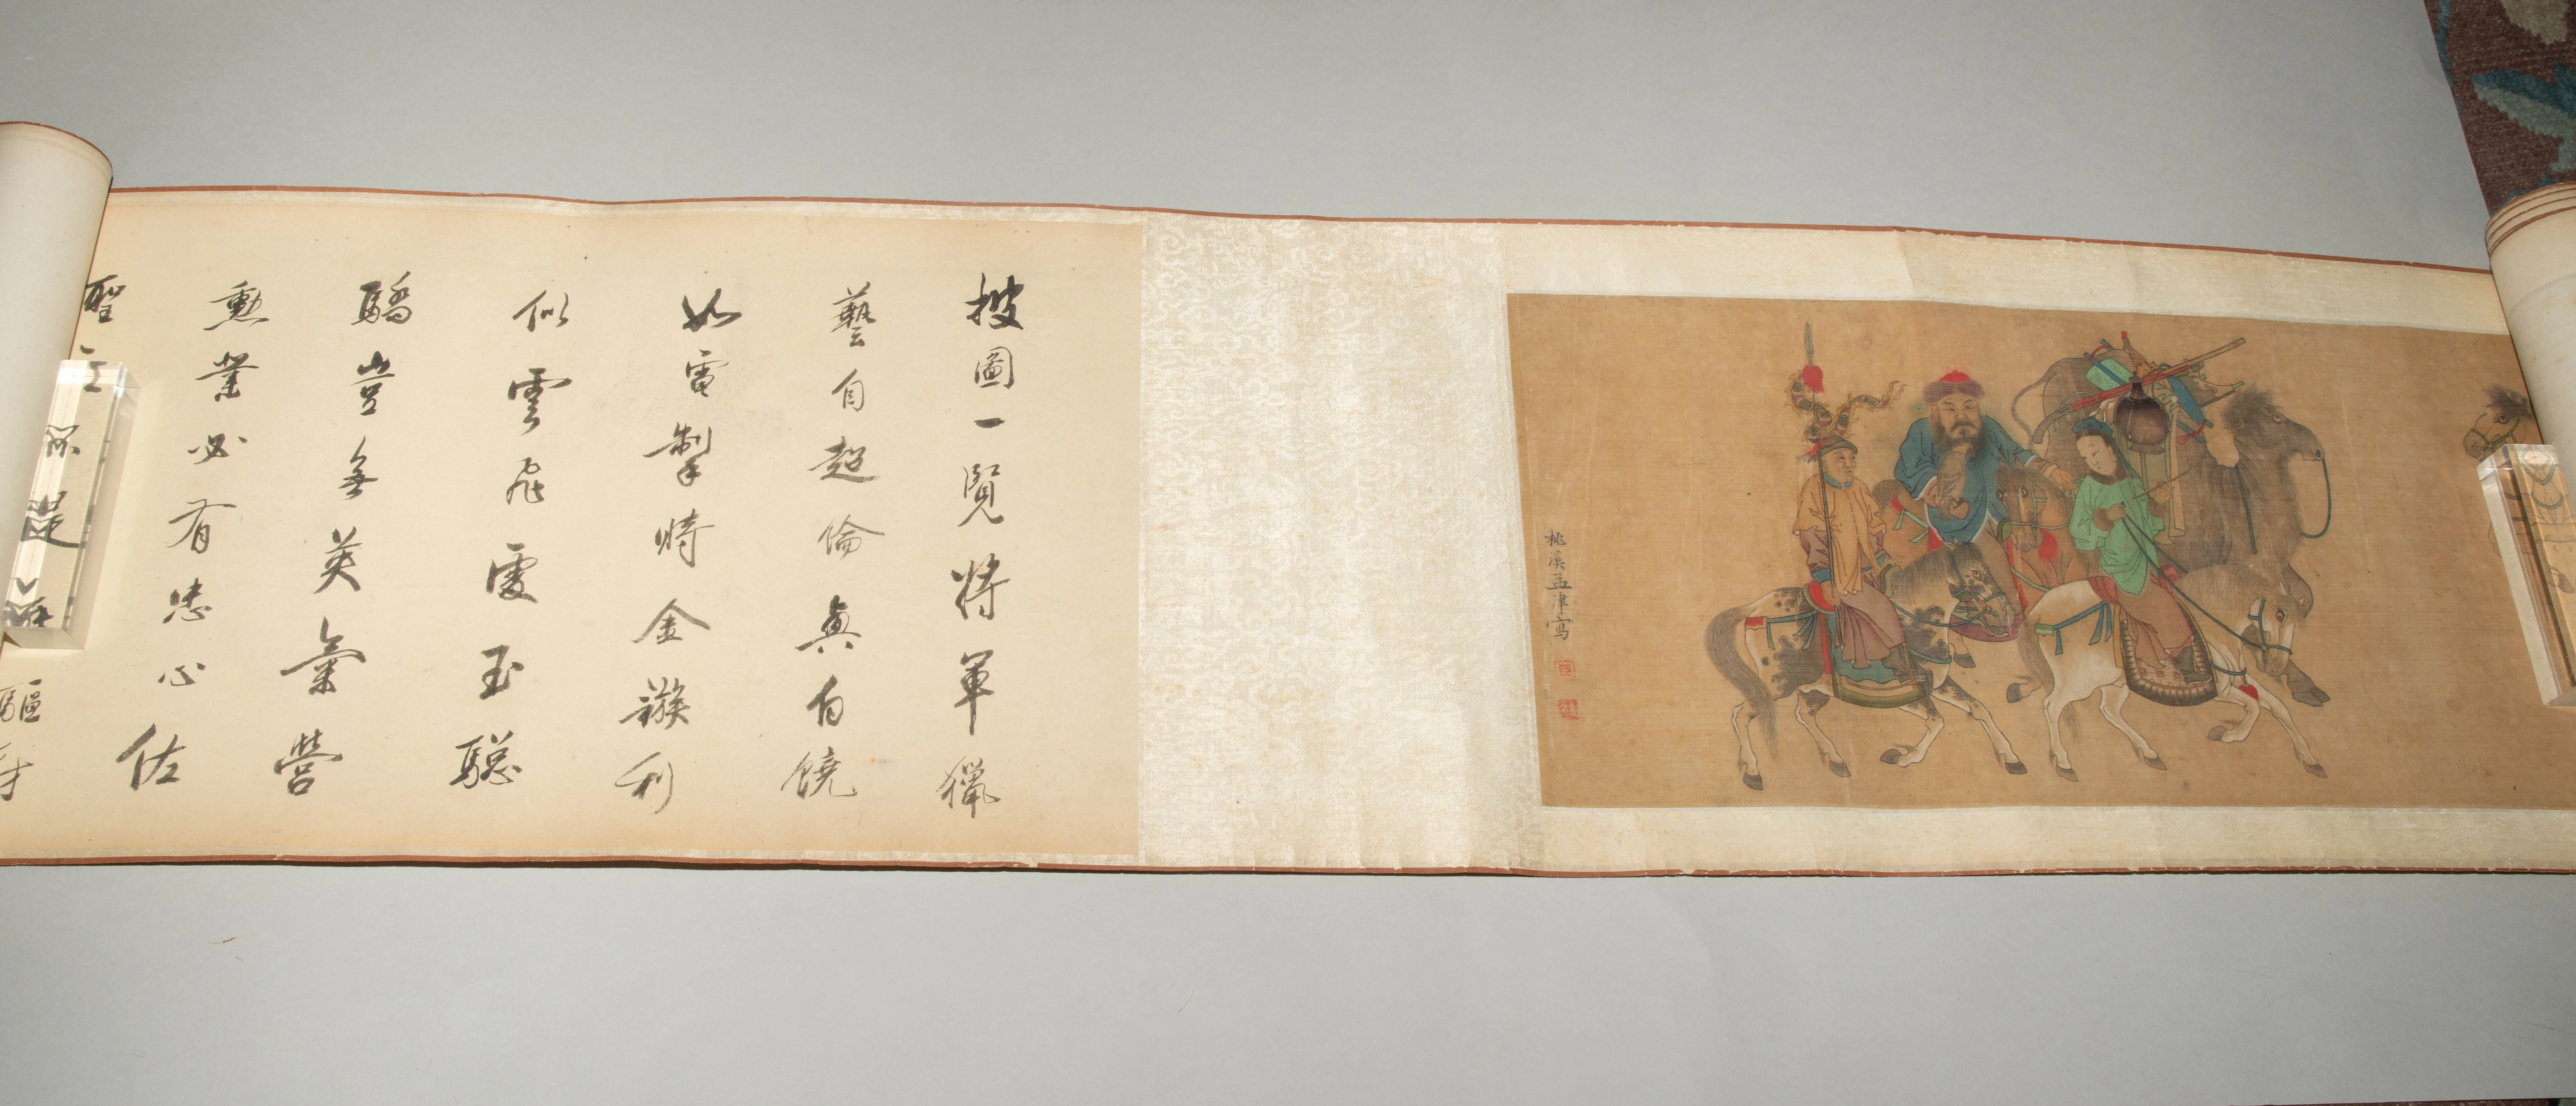 桃溪孟津寫
披圖一覽將軍獵
藝自超倫真白饒
如電掣時金鏃利
似雲飛處玉驄
驕豈無英氣營
勳業必有忠心佐
聖主
驅